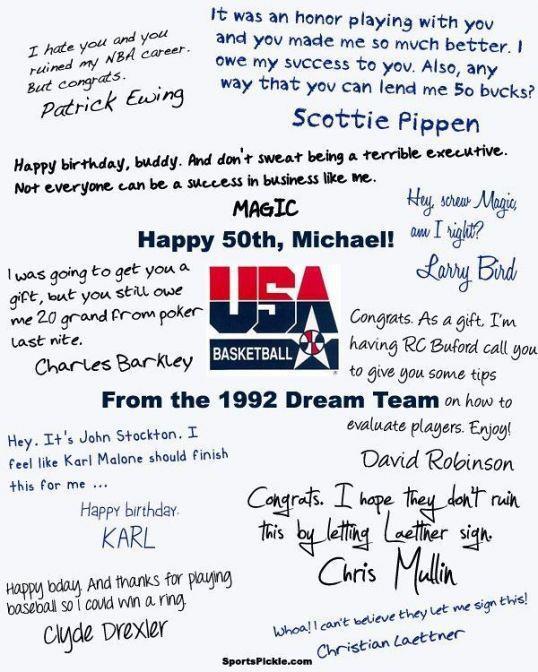 I hate you and you
ruined my NBA career.
But congrats.
Patrick Ewing
It was an honor playing with you
and you made me so much better. I
owe my success to you. Also, any
way that you can lend me 50 bucks?
Scottie Pippen
Happy birthday, buddy. And don't sweat being a terrible executive.
Not everyone can be a success in business like me.
MAGIC
Hey, screw Magic,
am I right?
Larry Bird
Happy 50th, Michael!
I was going to get you a
gift, but you still owe
me 20 grand from poker
last nite.
Charles Barkley
USA
BASKETBALL
Congrats. As a gift, I'm
having RC Buford call you
to give you some tips
on how to
evaluate players. Enjoy!
David Robinson
From the 1992 Dream Team
Hey. It's John Stockton. I
feel like Karl Malone should finish
this for me ...
Happy birthday.
KARL
Congrats. I hope they don't ruin
this by letting Laettner sign.
Chris Mullin
Happy bday. And thanks for playing
baseball so I could win a ring.
Clyde Drexler
Whoa! I can't believe they let me sign this!
Christian Laettner
SportsPickle.com